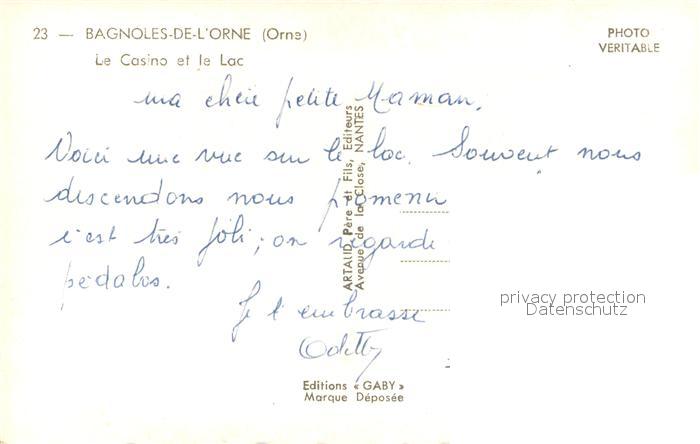 23 — BAGNOLES-DE-L'ORNE (Orne)
Le Casino et le Lac
PHOTO
VERITABLE
ma chère petite Maman,
Voici une vue sur le lac. Souvent nous
descendons nous promener
c'est très joli ; on regarde
pédalos.
Je t'embrasse
Odette
ARTAUD Père et Fils, Editeurs
Avenue de la Close, NANTES
privacy protection
Datenschutz
Editions « GABY »
Marque Déposée